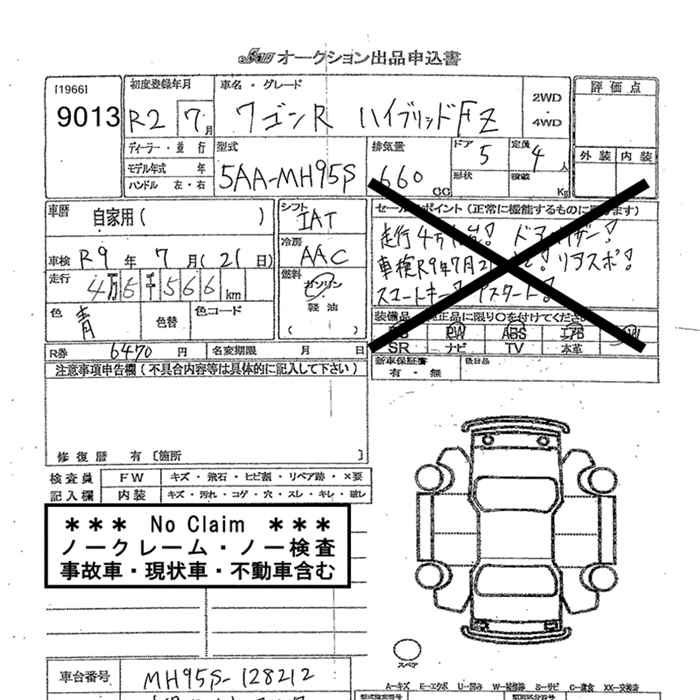 オークション出品申込書
[1966]
9013
初度登録年月
R2 7月
車名・グレード
ワゴンR ハイブリッドFZ
2WD
・
4WD
評価点
外装 内装
ディーラー・並行
モデル年式 年
ハンドル 左・右
型式
5AA-MH95S
排気量
660 CC
ドア
5
形状
定員
4人
積載
Kg
車歴
自家用( )
車検 R9年7月(21日)
走行
4万6千566km
色
青
色替
色コード
シフト
IAT
冷房
AAC
燃料
ガソリン
・
軽油
( )
R券 6470円
名変期限 月 日
セールスポイント(正常に機能するものに限ります)
走行4万
車検R9年7月2 リアスポ!
スマートキー!
装備品 純正品に限り○を付けてください
PW ABS エアB
SR ナビ TV 本革
新車保証書
有・無
後日品
注意事項申告欄(不具合内容等は具体的に記入して下さい)
修復歴 有〔箇所 〕
検査員
記入欄
FW キズ・飛石・ヒビ割・リペア跡・×要
内装 キズ・汚れ・コゲ・穴・スレ・キレ・破レ
*** No Claim ***
ノークレーム・ノー検査
事故車・現状車・不動車含む
スペア
A…キズ E…エクボ U…凹み W…補修跡 S…サビ C…腐食 XX…交換済
車台番号 MH95S-128212